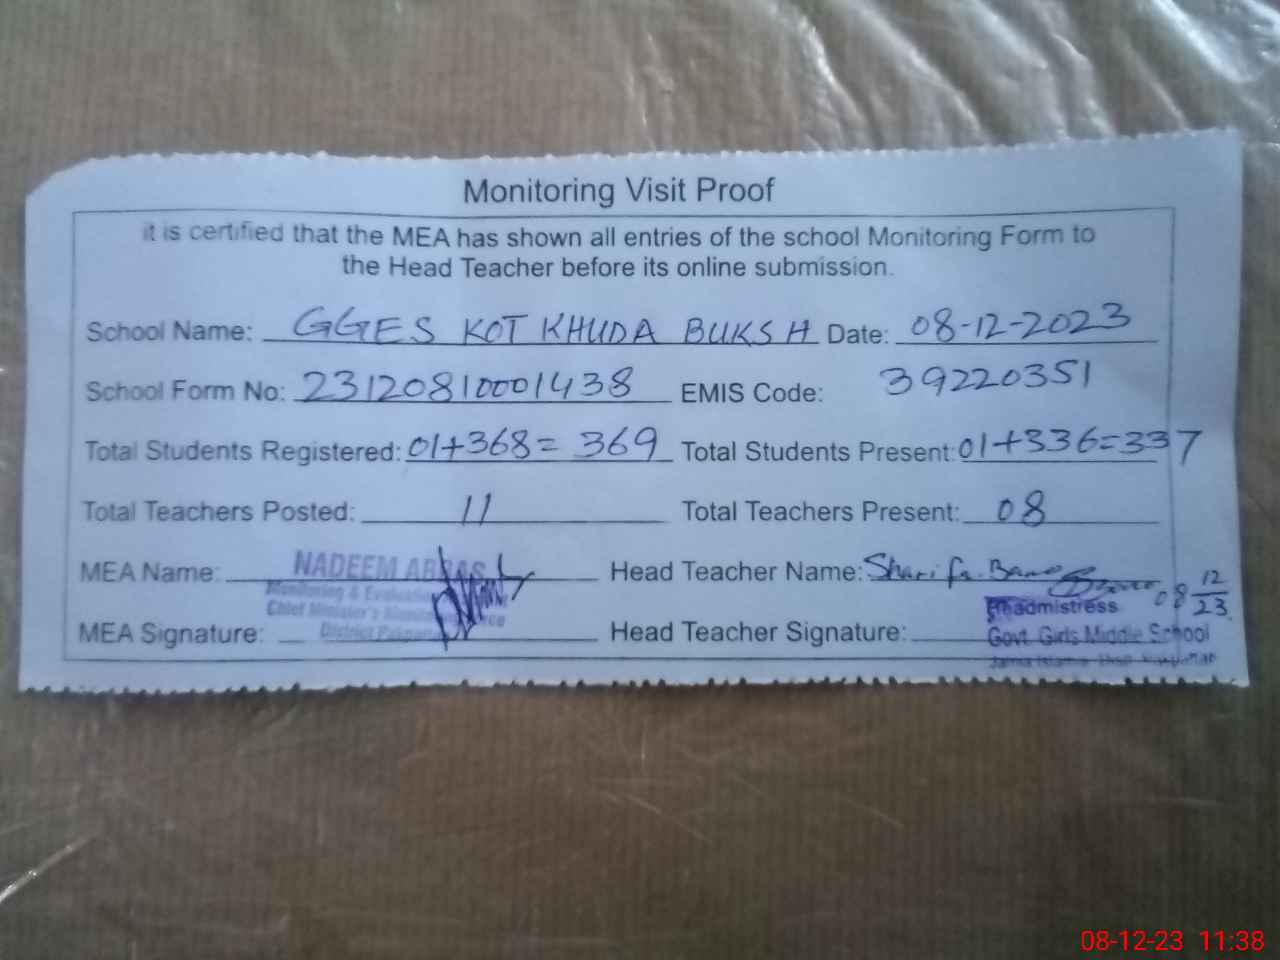 Monitoring Visit Proof
it is certified that the MEA has shown all entries of the school Monitoring Form to
the Head Teacher before its online submission.
School Name: GGES KOT KHUDA BUKSH Date: 08-12-2023
School Form No: 23120810001438 EMIS Code: 39220351
Total Students Registered: 01+368= 369 Total Students Present: 01+336=337
Total Teachers Posted: 11 Total Teachers Present: 08
MEA Name: NADEEM ABBAS Head Teacher Name: Sharifa Bano 08 12/23
Monitoring & Evaluation
Chief Minister's
District
Headmistress
MEA Signature: Head Teacher Signature: Govt. Girls Middle School
Jamia Islamia
08-12-23 11:38